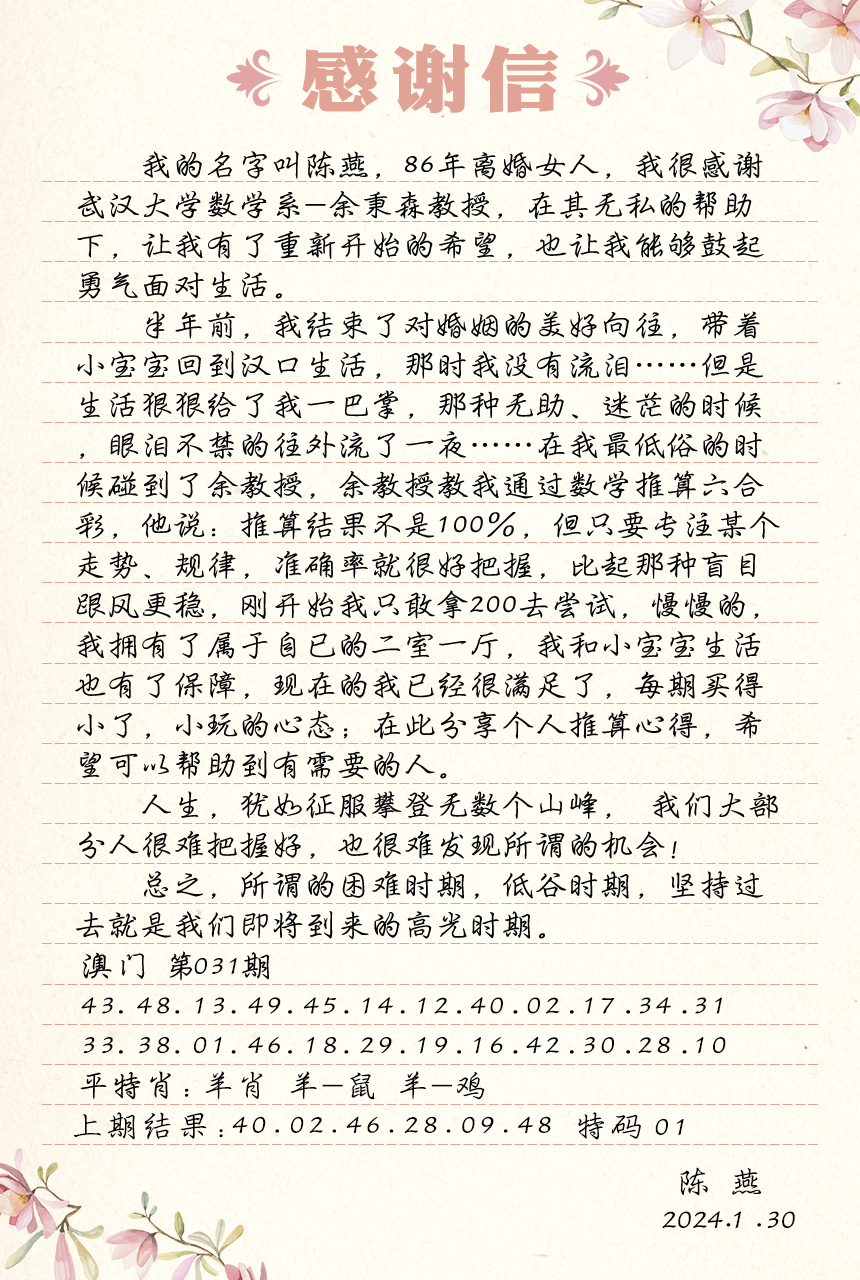 感谢信
我的名字叫陈燕，86年离婚女人，我很感谢
武汉大学数学系—余秉森教授，在其无私的帮助
下，让我有了重新开始的希望，也让我能够鼓起
勇气面对生活。
半年前，我结束了对婚姻的美好向往，带着
小宝宝回到汉口生活，那时我没有流泪……但是
生活狠狠给了我一巴掌，那种无助、迷茫的时候
，眼泪不禁的往外流了一夜……在我最低俗的时
候碰到了余教授，余教授教我通过数学推算六合
彩，他说：推算结果不是100%，但只要专注某个
走势、规律，准确率就很好把握，比起那种盲目
跟风更稳，刚开始我只敢拿200去尝试，慢慢的，
我拥有了属于自已的二室一厅，我和小宝宝生活
也有了保障，现在的我已经很满足了，每期买得
小了，小玩的心态；在此分享个人推算心得，希
望可以帮助到有需要的人。
人生，犹如征服攀登无数个山峰， 我们大部
分人很难把握好，也很难发现所谓的机会！
总之，所谓的困难时期，低谷时期，坚持过
去就是我们即将到来的高光时期。
澳门 第031期
43.48.13.49.45.14.12.40.02.17.34.31
33.38.01.46.18.29.19.16.42.30.28.10
平特肖：羊肖 羊—鼠 羊—鸡
上期结果：40.02.46.28.09.48 特码 01
陈 燕
2024.1.30